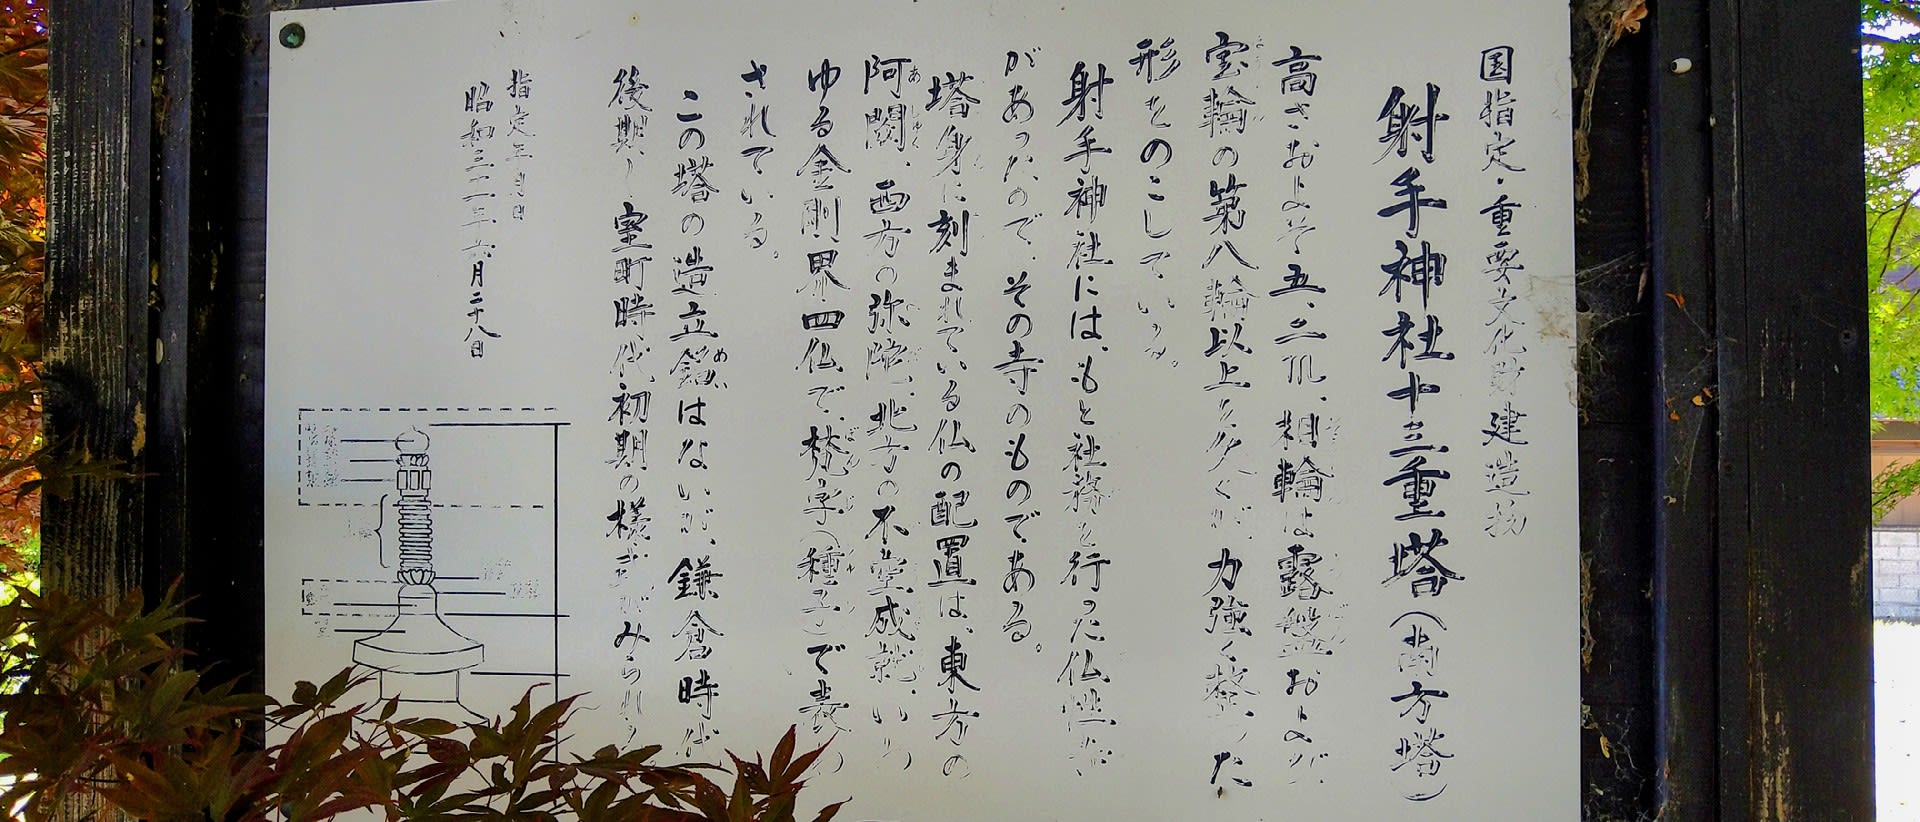 国指定・重要文化財建造物
射手神社十三重塔（南方塔）
高さおよそ五、五m、相輪は露盤および
宝輪の第八輪以上を欠くが、力強く整った
形をのこしている。
射手神社には、もと社務を行った仏性寺
があったので、その寺のものである。
塔身に刻まれている仏の配置は、東方の
阿閦、西方の弥陀、北方の不空成就、いわ
ゆる金剛界四仏で、梵字（種子）で表わ
されている。
この塔の造立銘はないが、鎌倉時代
後期〜室町時代初期の様式がみられる
指定年月日
昭和三二年六月二十八日